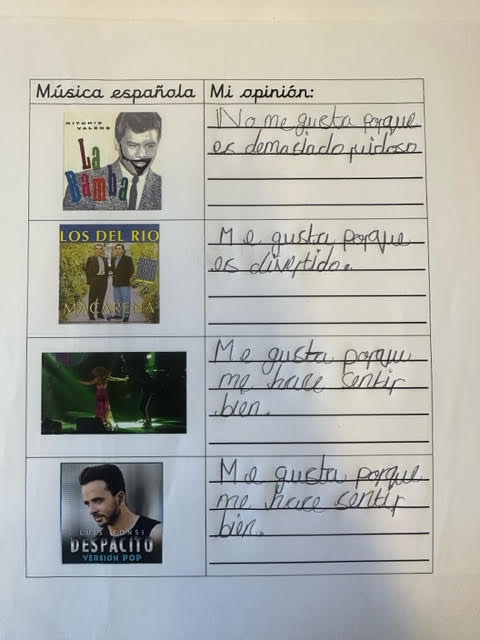 Música española
Mi opinión:
RITCHIE
VALENS
La
Bamba
No me gusta porque
es demasiado ruidoso
LOS DEL RIO
MACARENA
Me gusta porque
es divertido.
Me gusta porque
me hace sentir
bien.
LUIS FONSI
DESPACITO
VERSIÓN POP
Me gusta porque
me hace sentir
bien.